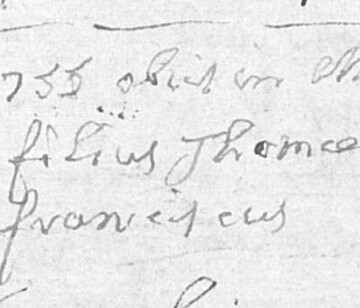 755 obiit in M
filius Thomae
franciscus